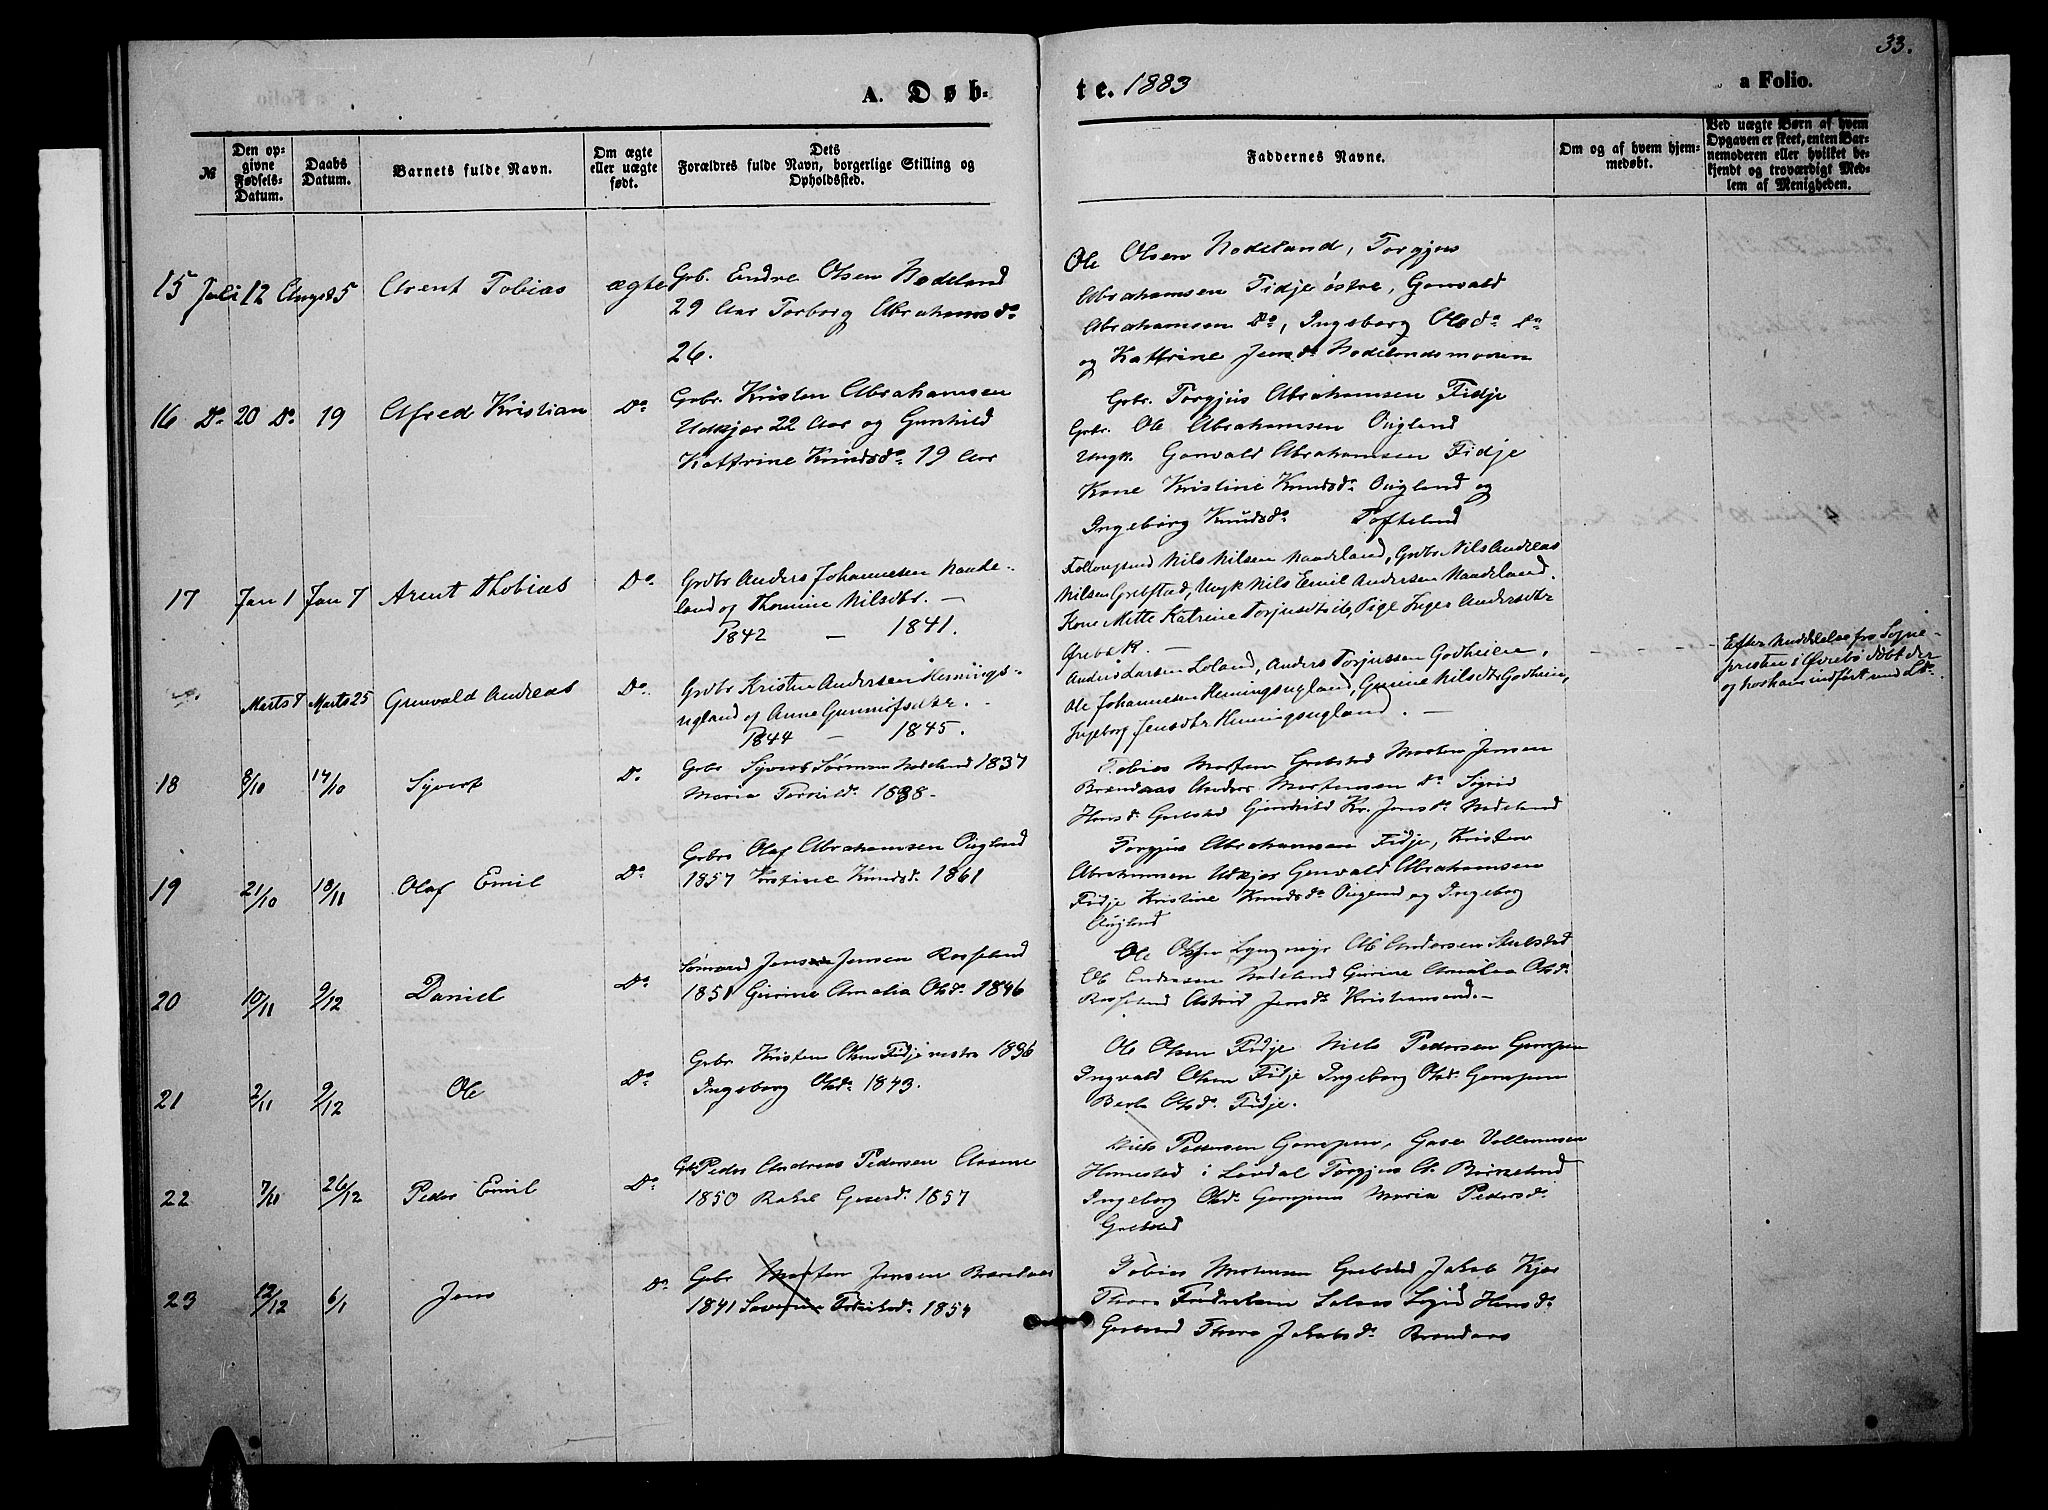 33.
A. Døb-
te. 1883
a Folio.
№
Den op-
givne
Fødsels-
Datum.
Daabs
Datum.
Barnets fulde Navn.
Om ægte
eller uægte
født.
Dets
Forældres fulde Navn, borgerlige Stilling og
Opholdssted.
Faddernes Navne.
Om og af hvem hjem-
medøbt.
Ved uægte Børn af hvem
Opgaven er skeet, enten Bar-
nemoderen eller hvilket be-
kjendt og troværdigt Med-
lem af Menigheden.
15 Juli 12 August 5 Arent Tobias ægte
Grb. Endre Olsen Nodeland
29 Aar Torborg Abrahamsdr
26.
Ole Olsen Nodeland, Torgjus
Abrahamsen Fidje østre, Gunvald
Abrahamsen Do, Ingeborg Olsdr
og Kattrine Jensdr Nodelandsmoen
16 Do 20 Do 19 Alfred Kristian Do
Grbr. Kristen Abrahamsen
Udkjær 22 Aar og Gunhild
Kattrine Knudsdr 19 Aar
Grbr. Torgjus Abrahamsen Fidje
Grbr. Ole Abrahamsen Øigland
Ungk. Gunvald Abrahamsen Fidje
Kone Kristine Knudsdr Øigland og
Ingeborg Knudsdr Tofteland
17 Jan 1 Jan 7 Arent Thobias Do
Grdbr Anders Johannesen Naade-
land og Thomine Nilsdtr. —
1842 — 1841.
Nils Nilsen Naadeland, Grdbr Nils Andreas
Nilsen Grebstad, Ungk Nils Emil Andersen Naadeland.
Kone Mette Katrine Torjusdtr ib, Pige Inger Andersdtr
Øvebøk. —
Marts 8 Marts 25 Gunvald Andreas Do
Grdbr Kristen Andersen Hennings-
ugland og Anne Gunniufsdtr. -
1844 — 1845.
Anders Larsen Loland, Anders Torjussen Godheien,
Ole Johannesen Henningsugland, Gurine Nilsdtr Godheien,
Ingeborg Jensdtr Henningsugland. —
Efter Meddelelse fra Sogne-
presten i Øvrebø døbt der
og hos ham indført med Lb.
18 8/10 14/10 Syvert Do
Grbr Syvert Sørensen Nodeland 1837
Maria Torkilds. 1838-
Tobias Morten Grebstad Morten Jensen
Brandaas Anders Mortensen Do Sigrid
Hansdr Grebstad Gundhild Kr. Jensdr Nodeland
19 21/10 18/11 Olaf Emil Do
Grbr Olaf Abrahamsen Øigland
1857 Kristine Knudsdr 1861
Torgjus Abrahamsen Fidje, Kristen
Abrahamsen Udkjær Gunvald Abrahamsen
Fidje Kristine Knudsdr Øigland og Ingeborg
Øigland
20 10/11 9/12 Daniel Do
Sømand Jens Jensen Rosseland
1851 Gurine Amalia Olsdr 1846
Ole Olsen Lyngmyr Ole Andersen Stulstad
Ole Endresen Nodeland Gurine Amalia Olsdr
Rosseland Astrid Jensdr Kristiansand.—
21 2/11 9/12 Ole Do
Grbr Kristen Olsen Fidje vestre 1836
Ingeborg Olsdr 1843.
Ole Olsen Fidje Niels Pedersen Grospen
Ingvald Olsen Fidje Ingeborg Olsdr Grospen
Berte Olsdr Fidje.
22 7/10 26/12 Peder Emil Do
Grb Peder Andreas Pedersen Aasane
1850 Rakel Gosesdr 1857
Niels Pedersen Grospen, Gose Vellemusen
Homestad i Laudal Torgjus A. Birkeland
Ingeborg Olsdr Grospen Maria Pedersdr
Grebstad
23 12/12 6/1 Jens Do
Grbr Morten Jensen Brandaas
1841 Severine Torkilds. 1854
Tobias Mortensen Grebstad Jakob Kjær
Thore Fredreksen Sigrid Hansdr
Grebstad Thora Jakobsdr Brandaas